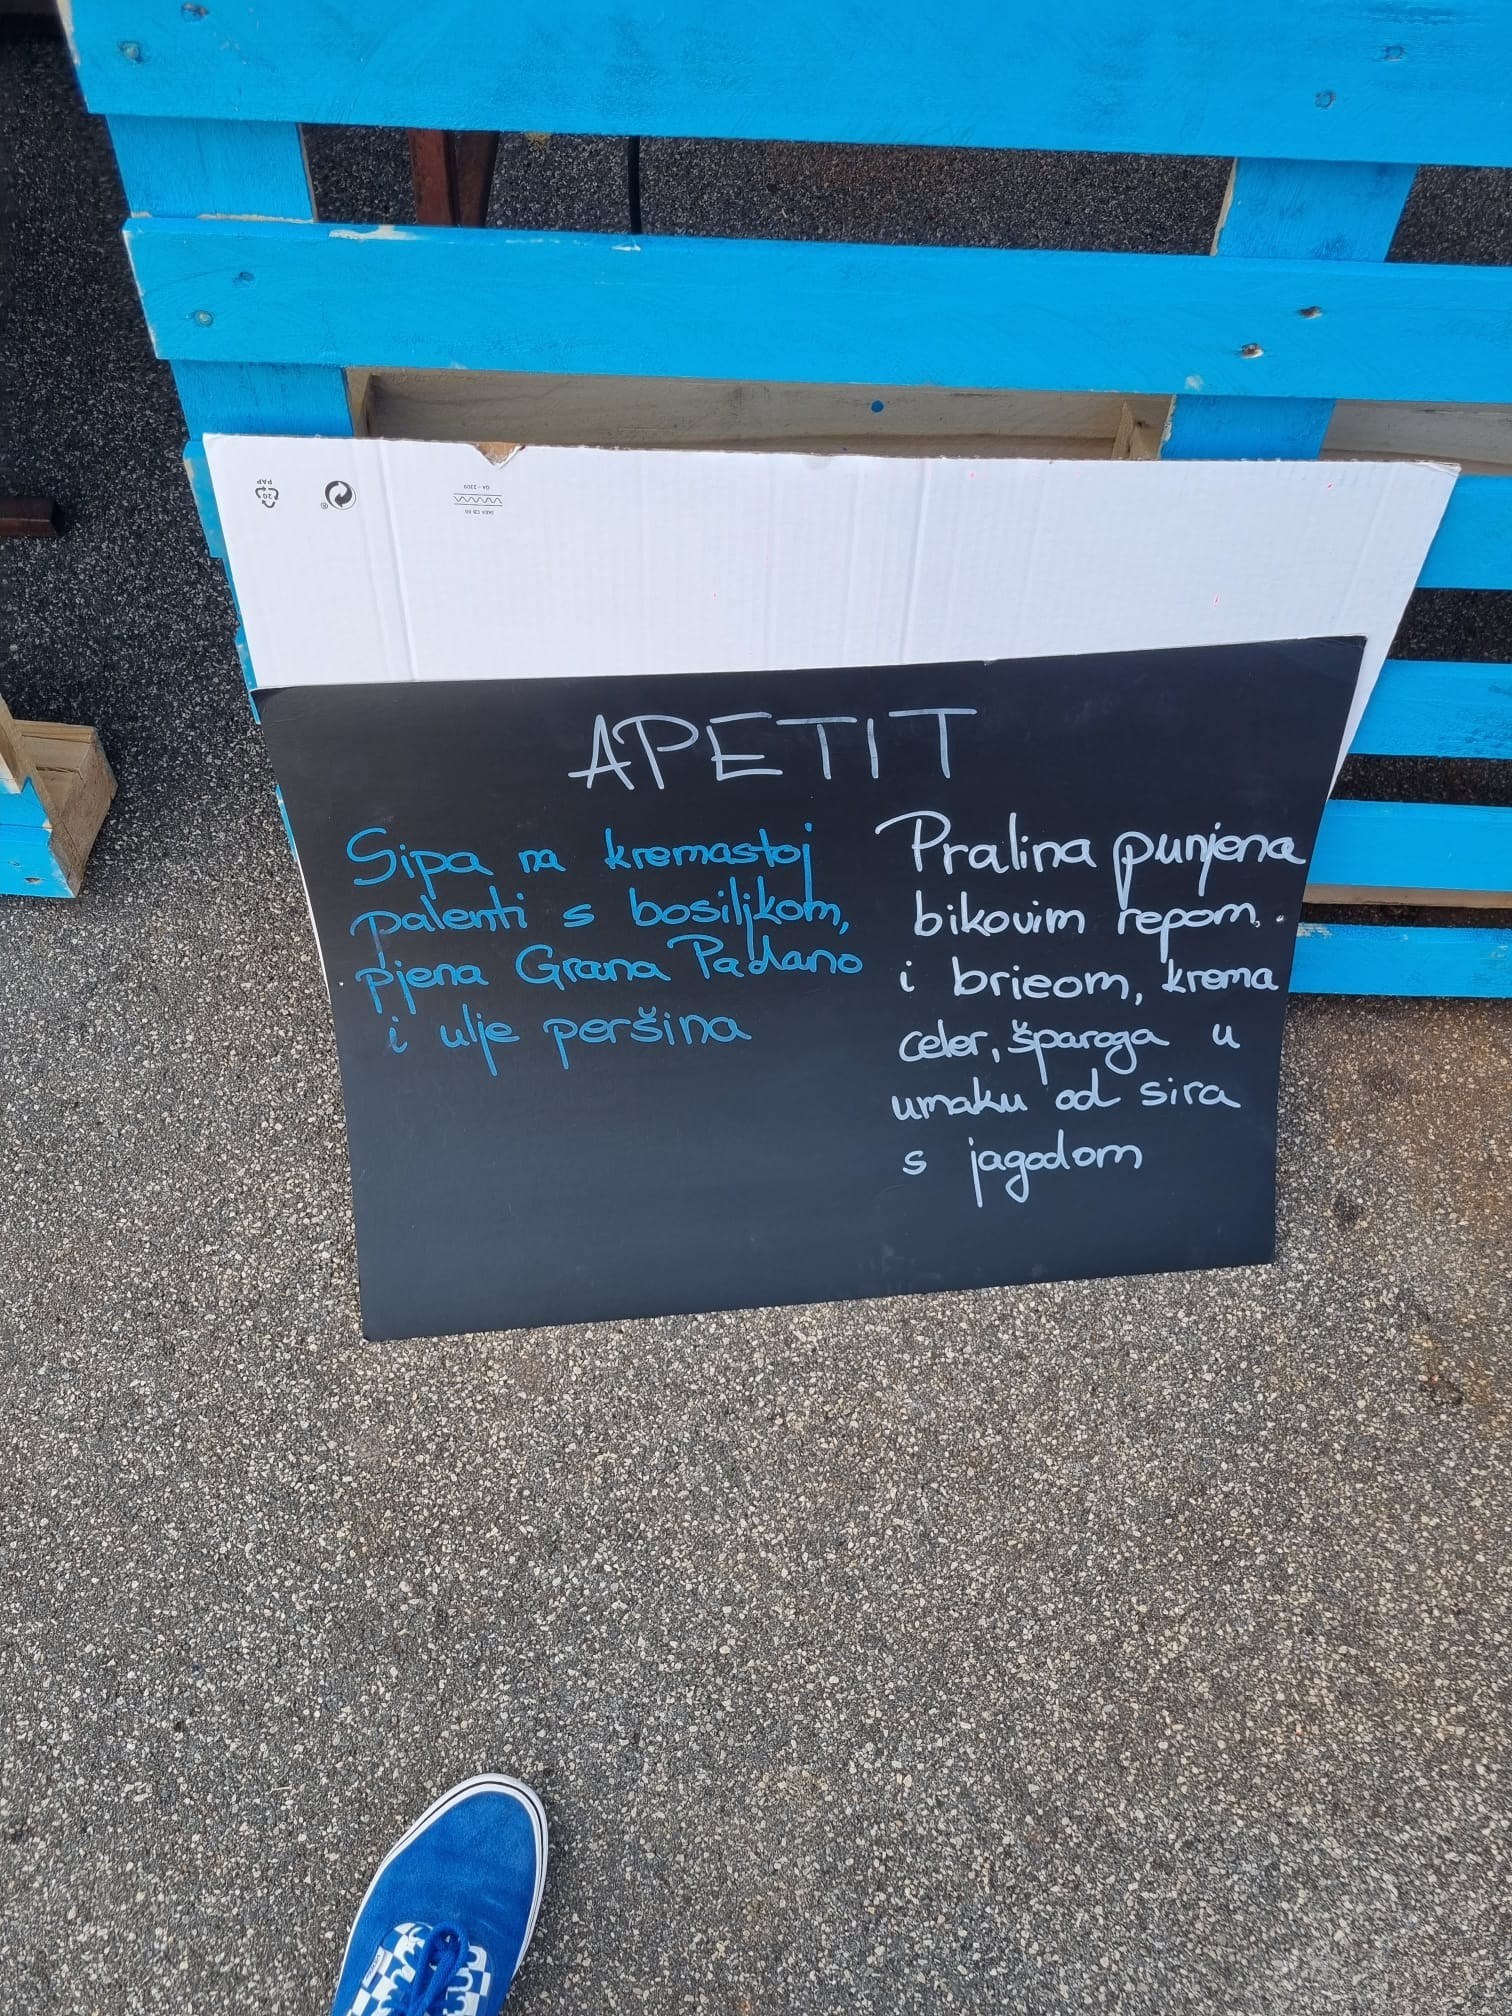 20
PAP
®
APETIT
Sipa na kremastoj
palenti s bosiljkom,
pjena Grana Padano
i ulje peršina
Pralina punjena
bikovim repom
i brieom, krema
celer, šparoga u
umaku od sira
s jagodom